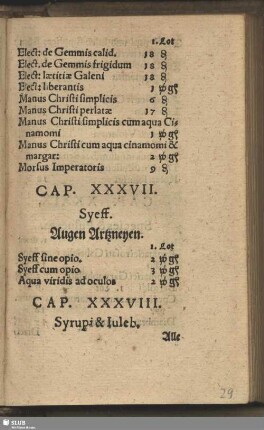 1. Lot
Elect: de Gemmis calid. 18 ₰
Elect. de Gemmis frigidum 18 ₰
Elect: lætitiæ Galeni 18 ₰
Elect: liberantis 1 w gr̃
Manus Christi simplicis 6 ₰
Manus Christi perlatæ 17 ₰
Manus Christi simplicis cum aqua Ci-
namomi 1 w gr̃
Manus Christi cum aqua cinamomi &
margar: 2 w gr̃
Morsus Imperatoris 9 ₰
CAP. XXXVII.
Syeff.
Augen Artzneyen.
1. Lot
Syeff sine opio. 2 w gr̃
Syeff cum opio 3 w gr̃
Aqua viridis ad oculos 2 w gr̃
CAP. XXXVIII.
Syrupi & Iuleb.
Alle
29
SLUB